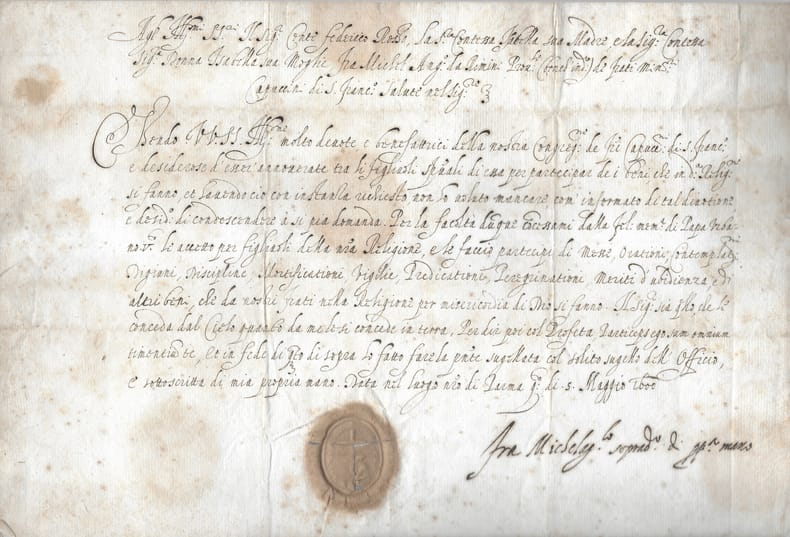 Agl' Ill.mi SS.ri Il Sig.r Conte Federico Rossi, la S.ra Contessa Isabella sua Madre, e la Sig.ra Contessa
Sig.ra Donna Isabella sua Moglie Fra Michel Ang.lo da Rimini Prou.le (benche ind.o) de frati Min.ri
Capuccini di S. Franc.o Salute nel Sig.re
Essendo VV. SS. Ill.me molto deuote e benefattrici della nostra Congreg.ne de fr.i Capucc.ni di S. Franc.o
e desiderose d'essere annouerate tra li figliuoli sp.uali di essa per participar de i beni che in d.a Relig.ne
si fanno, et hauendocio con instanza richiesto non ho uoluto mancare com' informato di tal diuotione
e desid.o di condescendere à si pia domanda. Per la facultà dunque concessami dalla fel. mem. di Papa Urba-
no V.o le accetto per figliuoli della n͠ra Religione, e le faccio partecipi di Messe, Orationi, Contemplat.ni
Digiuni, Discipline, Mortificationi, Vigilie, Predicationi, Peregrinationi, Meriti d'ubidienza, e d'
altri beni, che da nostri frati nella Religione per misericordia di Dio si fanno. Il Sig.re sia q.llo, che le
conceda dal Cielo quanto da me le si concede in terra, Per dir poi col Profeta Particeps ego sum omnium
timentium te, et in fede di q.to di sopra hò fatto far la p͠nte sugellata col solito sugello dell' Officio,
e sottoscritta di mia propria mano. Data nel luogo n͠ro di Parma q.to di 5. Maggio 1600
Fra Michelag.lo soprad.o di pp.a mano